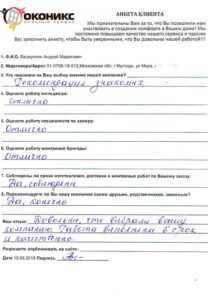 ОКОНИКС
ОКОННЫЙ СЕРВИС
АНКЕТА КЛИЕНТА
Мы признательны Вам за то, что Вы позволили нам
участвовать в создании комфорта в Вашем доме! Мы
постоянно повышаем качество нашего сервиса и просим
Вас заполнить анкету, чтобы быть уверенными, что Вы довольны нашей работой!!!
1. Ф.И.О. Валиуллин Андрей Маратович
2. №договора/Адрес 01-0706-18-012,Московская обл, г Мытищи, ул Мира,
3. Что повлияло на Ваш выбор именно нашей компании?
Рекомендация знакомых
4. Оцените работу менеджера:
Отлично
5. Оцените работу специалиста по замеру:
Отлично
6. Оцените работу монтажной бригады:
Отлично
7. Соблюдены ли сроки изготовления, доставки и монтажных работ по Вашему заказу:
Да, соблюдены
8. Порекомендуете ли Вы нашу компанию своим друзьям, родственникам, знакомым?
Да, конечно
Ваш отзыв: Довольны, что выбрали вашу
компанию. Работа выполнена в срок
и качественно.
Разрешите опубликовать на сайте:
Дата 15.06.2018 Подпись